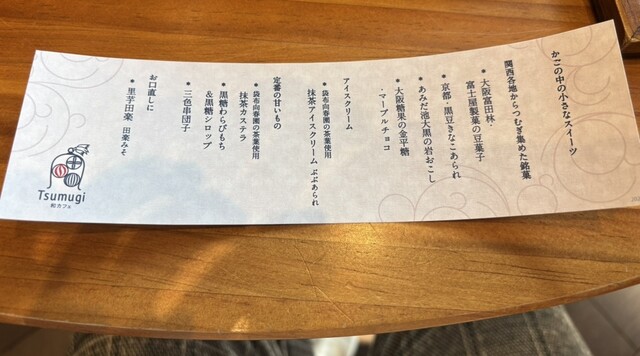 かごの中の小さなスイーツ
関西各地からつむぎ集めた銘菓
● 大阪富田林・
富士屋製菓の豆菓子
● 京都・黒豆きなこあられ
● あみだ池大黒の岩おこし
● 大阪糖果の金平糖
・マーブルチョコ
アイスクリーム
● 袋布向春園の茶葉使用
抹茶アイスクリーム ぶぶあられ
定番の甘いもの
● 袋布向春園の茶葉使用
抹茶カステラ
● 黒糖わらびもち
&黒糖シロップ
● 三色串団子
お口直しに
● 里芋田楽 田楽みそ
Tsumugi
和カフェ